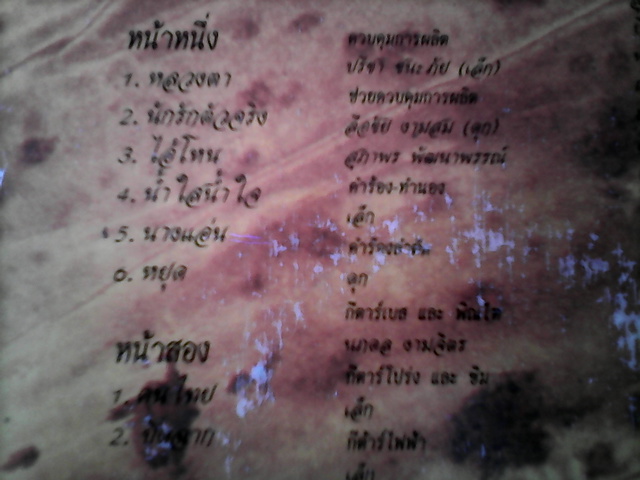 หน้าหนึ่ง
1. หลวงตา
2. นักรักตัวจริง
3. ไอ้โหน
4. น้ำใสน้ำใจ
5. นางแอ่น
6. หยุด
หน้าสอง
1. คนไทย
2.
ควบคุมการผลิต
ปรีชา ชนะภัย (เล็ก)
ช่วยควบคุมการผลิต
ลือชัย งามสม (ดุก)
สุภาพร พัฒนาพรรณ์
คำร้อง-ทำนอง
เล็ก
คำร้องลำตัด
ดุก
กีตาร์เบส และ
นภดล งามจิตร
กีตาร์โปร่ง และ ขิม
เล็ก
กีต้าร์ไฟฟ้า
เล็ก